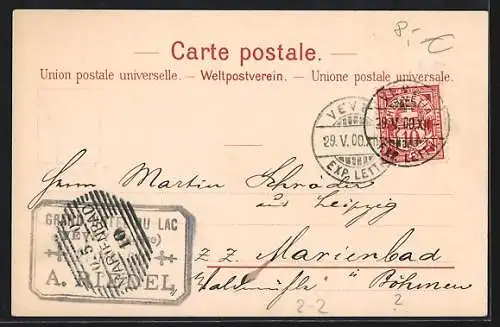 8,- €
Carte postale.
Union postale universelle. – Weltpostverein. – Unione postale universale.
VEVEY
29.V.00.XI
EXP. LETT.
29.V.00.XI
EXP. LETT.
10
Herrn Martin Schröder
aus Leipzig
z. Z. Marienbad
"Waldmühle" Böhmen
GRAND HOTEL DU LAC
A. RIEDEL
MARIENBAD
2-2
?